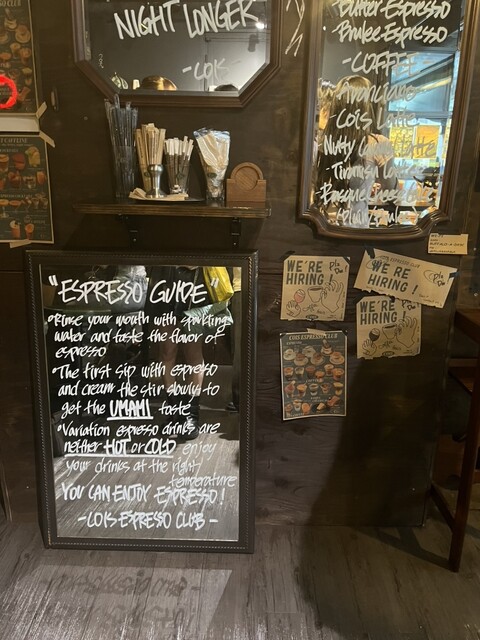 NIGHT LONGER
- COIS -
Butter Espresso
Brulee Espresso
- COFFEE -
Americano
Cois Latte
"ESPRESSO GUIDE"
Rinse your mouth with sparkling
water and taste the flavor of
espresso
The first sip with espresso
and cream the stir slowly to
get the UMAMI taste
Variation espresso drinks are
neither HOT or COLD enjoy
your drinks at the right
temperature
YOU CAN ENJOY ESPRESSO!
- COIS ESPRESSO CLUB -
WE'RE
HIRING!
WE'RE
HIRING!
WE'RE
HIRING!
COIS ESPRESSO CLUB